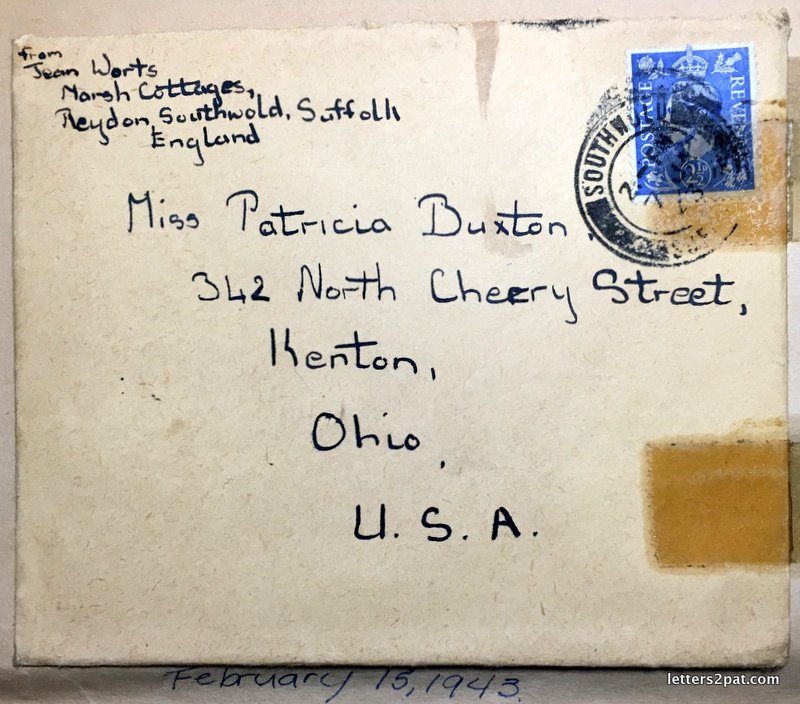 from
Jean Worts
Marsh Cottages,
Reydon, Southwold, Suffolk
England
POSTAGE
REVE
2½
SOUTHW
Miss Patricia Buxton.
342 North Cherry Street,
Kenton,
Ohio,
U. S. A.
February 15, 1943
letters2pat.com